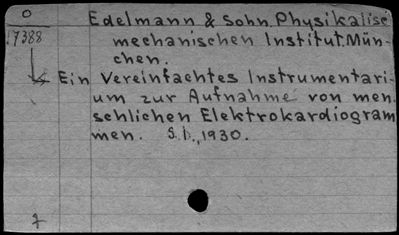 O
17388
Edelmann & Sohn. Physikalise
mechanischen Institut. Mün-
chen.
Ein Vereinfachtes Instrumentari-
um zur Aufnahme von men
schlichen Elektrokardiogram
men. S.l., 1930.